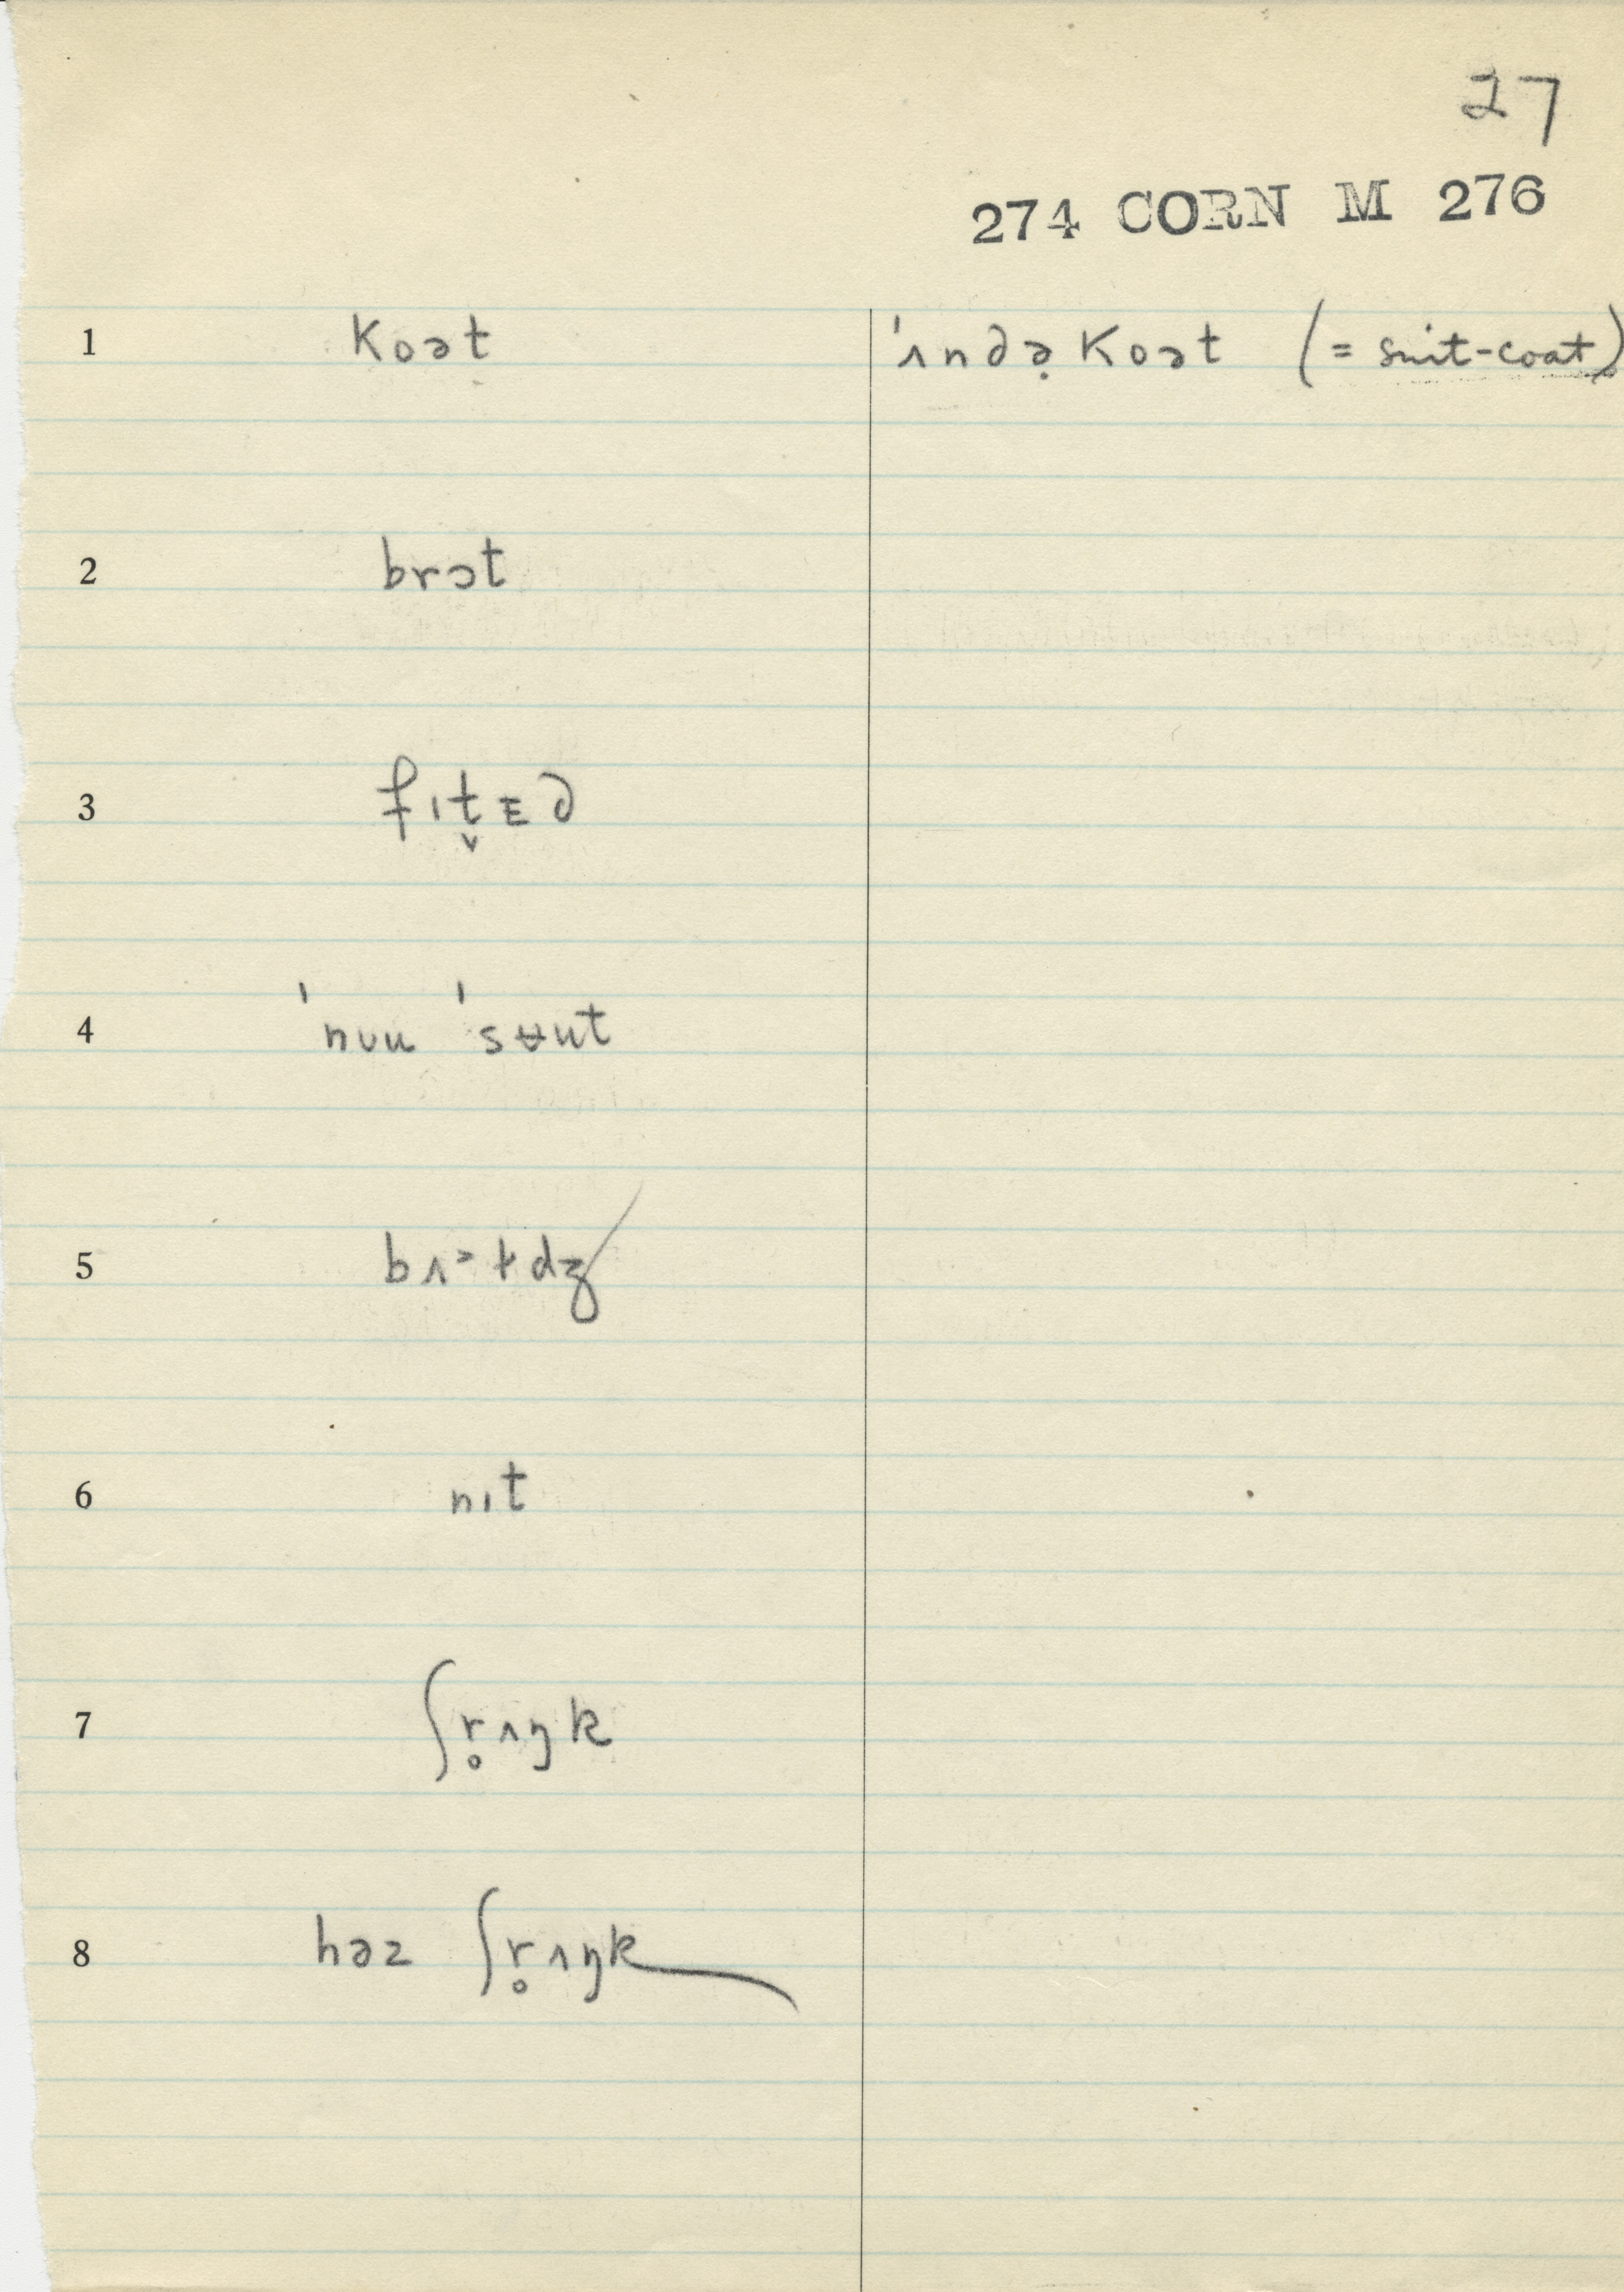 27
274 CORN M 276
1 koət 'ʌndə̣ koət (= suit-coat)
2 brɔt
3 fɪt̬ᴇd
4 'nʊu 'sʉut
5 bʌ˃ɫdʒ
6 nɪt
7 ʃr̥ʌŋk
8 həz ʃr̥ʌŋk